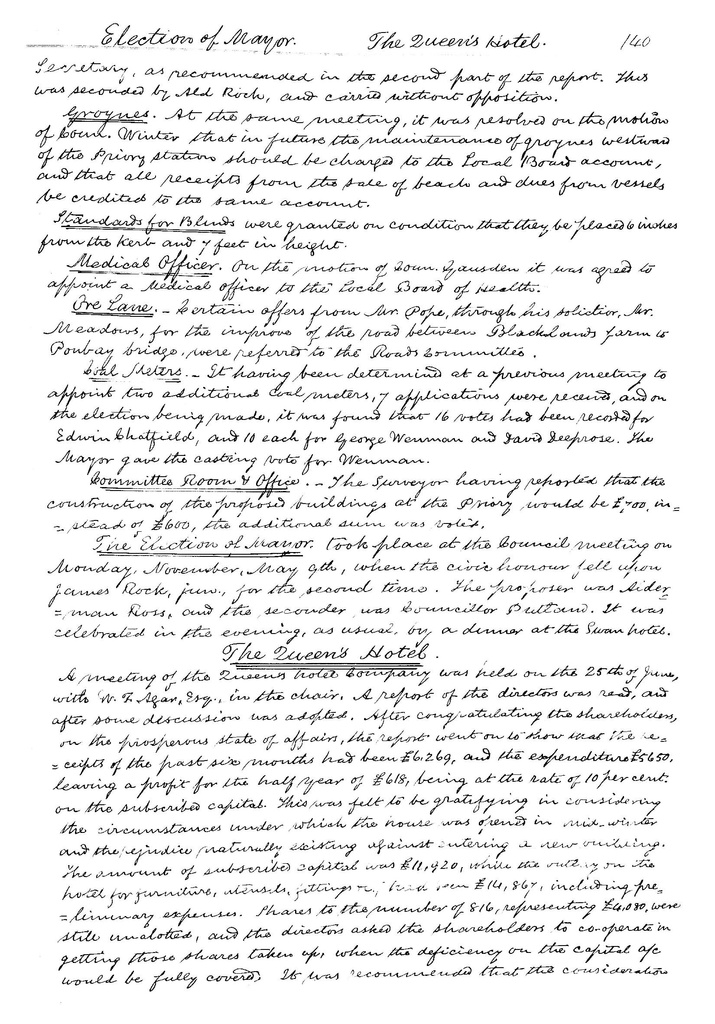 Election of Mayor. The Queen's Hotel. 140
Secretary, as recommended in the second part of the report. This
was seconded by Ald Rock, and carried without opposition.
Groynes. At the same meeting, it was resolved on the motion
of Coun. Winter that in future the maintenance of groynes westward
of the Priory station should be charged to the Local Board account,
and that all receipts from the sale of beach and dues from vessels
be credited to the same account.
Standards for Blinds were granted on condition that they be placed 6 inches
from the kerb and 7 feet in height.
Medical Officer. On the motion of Coun. Gausden it was agreed to
appoint a Medical officer to the Local Board of Health.
Ore Lane. - Certain offers from Mr. Pope, through his solictior, Mr.
Meadows, for the improve of the road between Blacklands farm to
Ponbay bridge, were referred to the Roads Committee.
Coal Meters. - It having been determined at a previous meeting to
appoint two additional coal meters, 7 applications were received, and on
the election being made, it was found that 16 votes had been recorded for
Edwin Chatfield, and 10 each for George Wenman and David Deeprose. The
Mayor gave the casting vote for Wenman.
Committee Room & Office. - The Surveyor having reported that the
construction of the proposed buildings at the Priory would be £700, in=
=stead of £600, the additional sum was voted.
The Election of Mayor. took place at the Council meeting on
Monday, November, May 9th, when the civic honour fell upon
James Rock, jun., for the second time. The proposer was Alder=
=man Ross, and the seconder was Councillor Putland. It was
celebrated in the evening, as usual, by a dinner at the Swan hotel.
The Queen's Hotel.
A meeting of the Queen's hotel Company was held on the 25th of June,
with W. F. Agar, Esq., in the chair. A report of the directors was read, and
after some discussion was adopted. After congratulating the shareholders,
on the prosperous state of affairs, the report went on to show that the re=
=ceipts of the past six months had been £6,269, and the expenditure £5650,
leaving a profit for the half year of £618, being at the rate of 10 per cent.
on the subscribed capital. This was felt to be gratifying in considering
the circumstances under which the house was opened in mid-winter
and the prejudice naturally existing against entering a new building.
The amount of subscribed capital was £11,920, while the outlay on the
hotel for furniture, utensils, fittings had been £14,867, including pre=
=liminary expenses. Shares to the number of 816, representing £4,080, were
still unalotted, and the directors asked the shareholders to co-operate in
getting those shares taken up, when the deficiency on the capital a/c
would be fully covered. It was recommended that the consideration